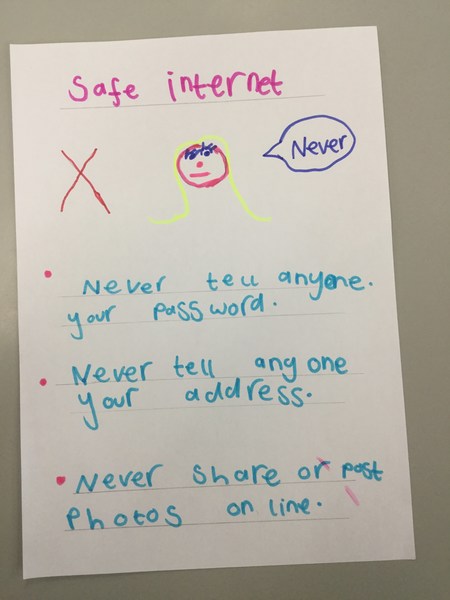 Safe internet
Never
Never tell anyone.
your password.
Never tell any one
your address.
Never share or post
Photos on line.